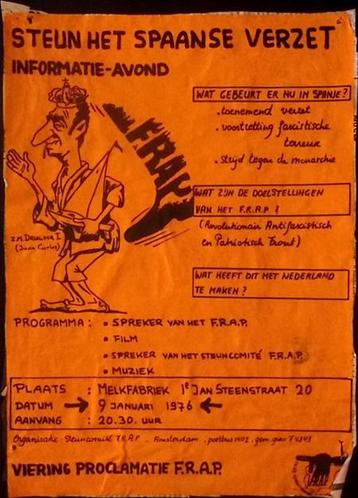 STEUN HET SPAANSE VERZET
INFORMATIE-AVOND
WAT GEBEURT ER NU IN SPANJE?
. toenemend verzet
. voortzetting fascistische
terreur
. strijd tegen de monarchie
F.R.A.P.
WAT ZIJN DE DOELSTELLINGEN
VAN HET F.R.A.P.?
(Revolutionair Antifascistisch
en Patriotisch Front)
Z.M.
(Juan Carlos)
WAT HEEFT DIT MET NEDERLAND
TE MAKEN?
PROGRAMMA : • SPREKER VAN HET F.R.A.P.
• FILM
• SPREKER VAN HET STEUNCOMITÉ F.R.A.P.
• MUZIEK
PLAATS : MELKFABRIEK 1e JAN STEENSTRAAT 20
DATUM → 9 JANUARI 1976 ←
AANVANG : 20.30. UUR
Organisatie Steuncomité F.R.A.P. - Amsterdam. postbus
VIERING PROCLAMATIE F.R.A.P.